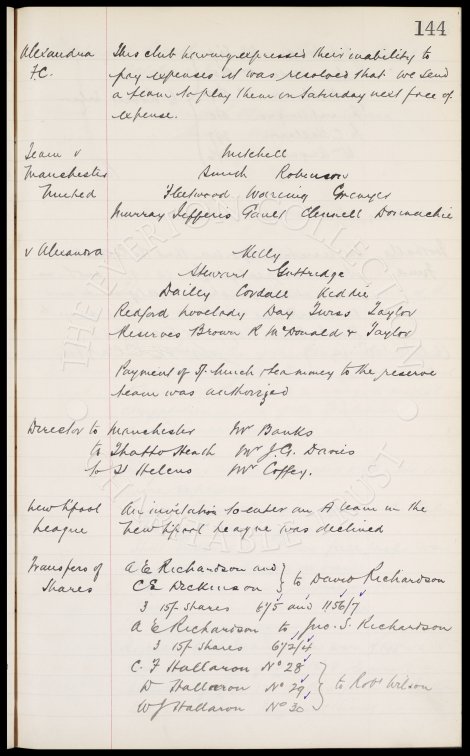 144
Alexandra This club having expressed their inability to
F.C. pay expenses it was resolved that we send
a team to play them on Saturday next free of
expense.
Team v Mitchell
Manchester Smith Robinson
United Fleetwood Waring Grenyer
Murray Jefferis Gault Clennell Donnachie
v Alexandra Kelly
Stewart Guttridge
Dailey Cordall Kiddie
Redford Lovelady Day Twiss Taylor
Reserves Brown R McDonald & Taylor
Payment of lunch & tea money to the reserve
team was authorized
Director to Manchester Mr Banks
to Thatto Heath Mr J.G. Davies
to St Helens Mr Coffey.
New L'pool An invitation to enter an A team in the
League New L'pool League was declined
Transfers of A E Richardson and
Shares C E Dickinson to David Richardson
3 15/- shares 67/5 and 1156/7
A E Richardson to Jno. S. Richardson
3 15/- shares 672/4
C. F Hallaron No 28
D Hallaron No 29 to Robt Wilson
W J Hallaron No 30
THE EVERTON COLLECTION
CHARITABLE TRUST